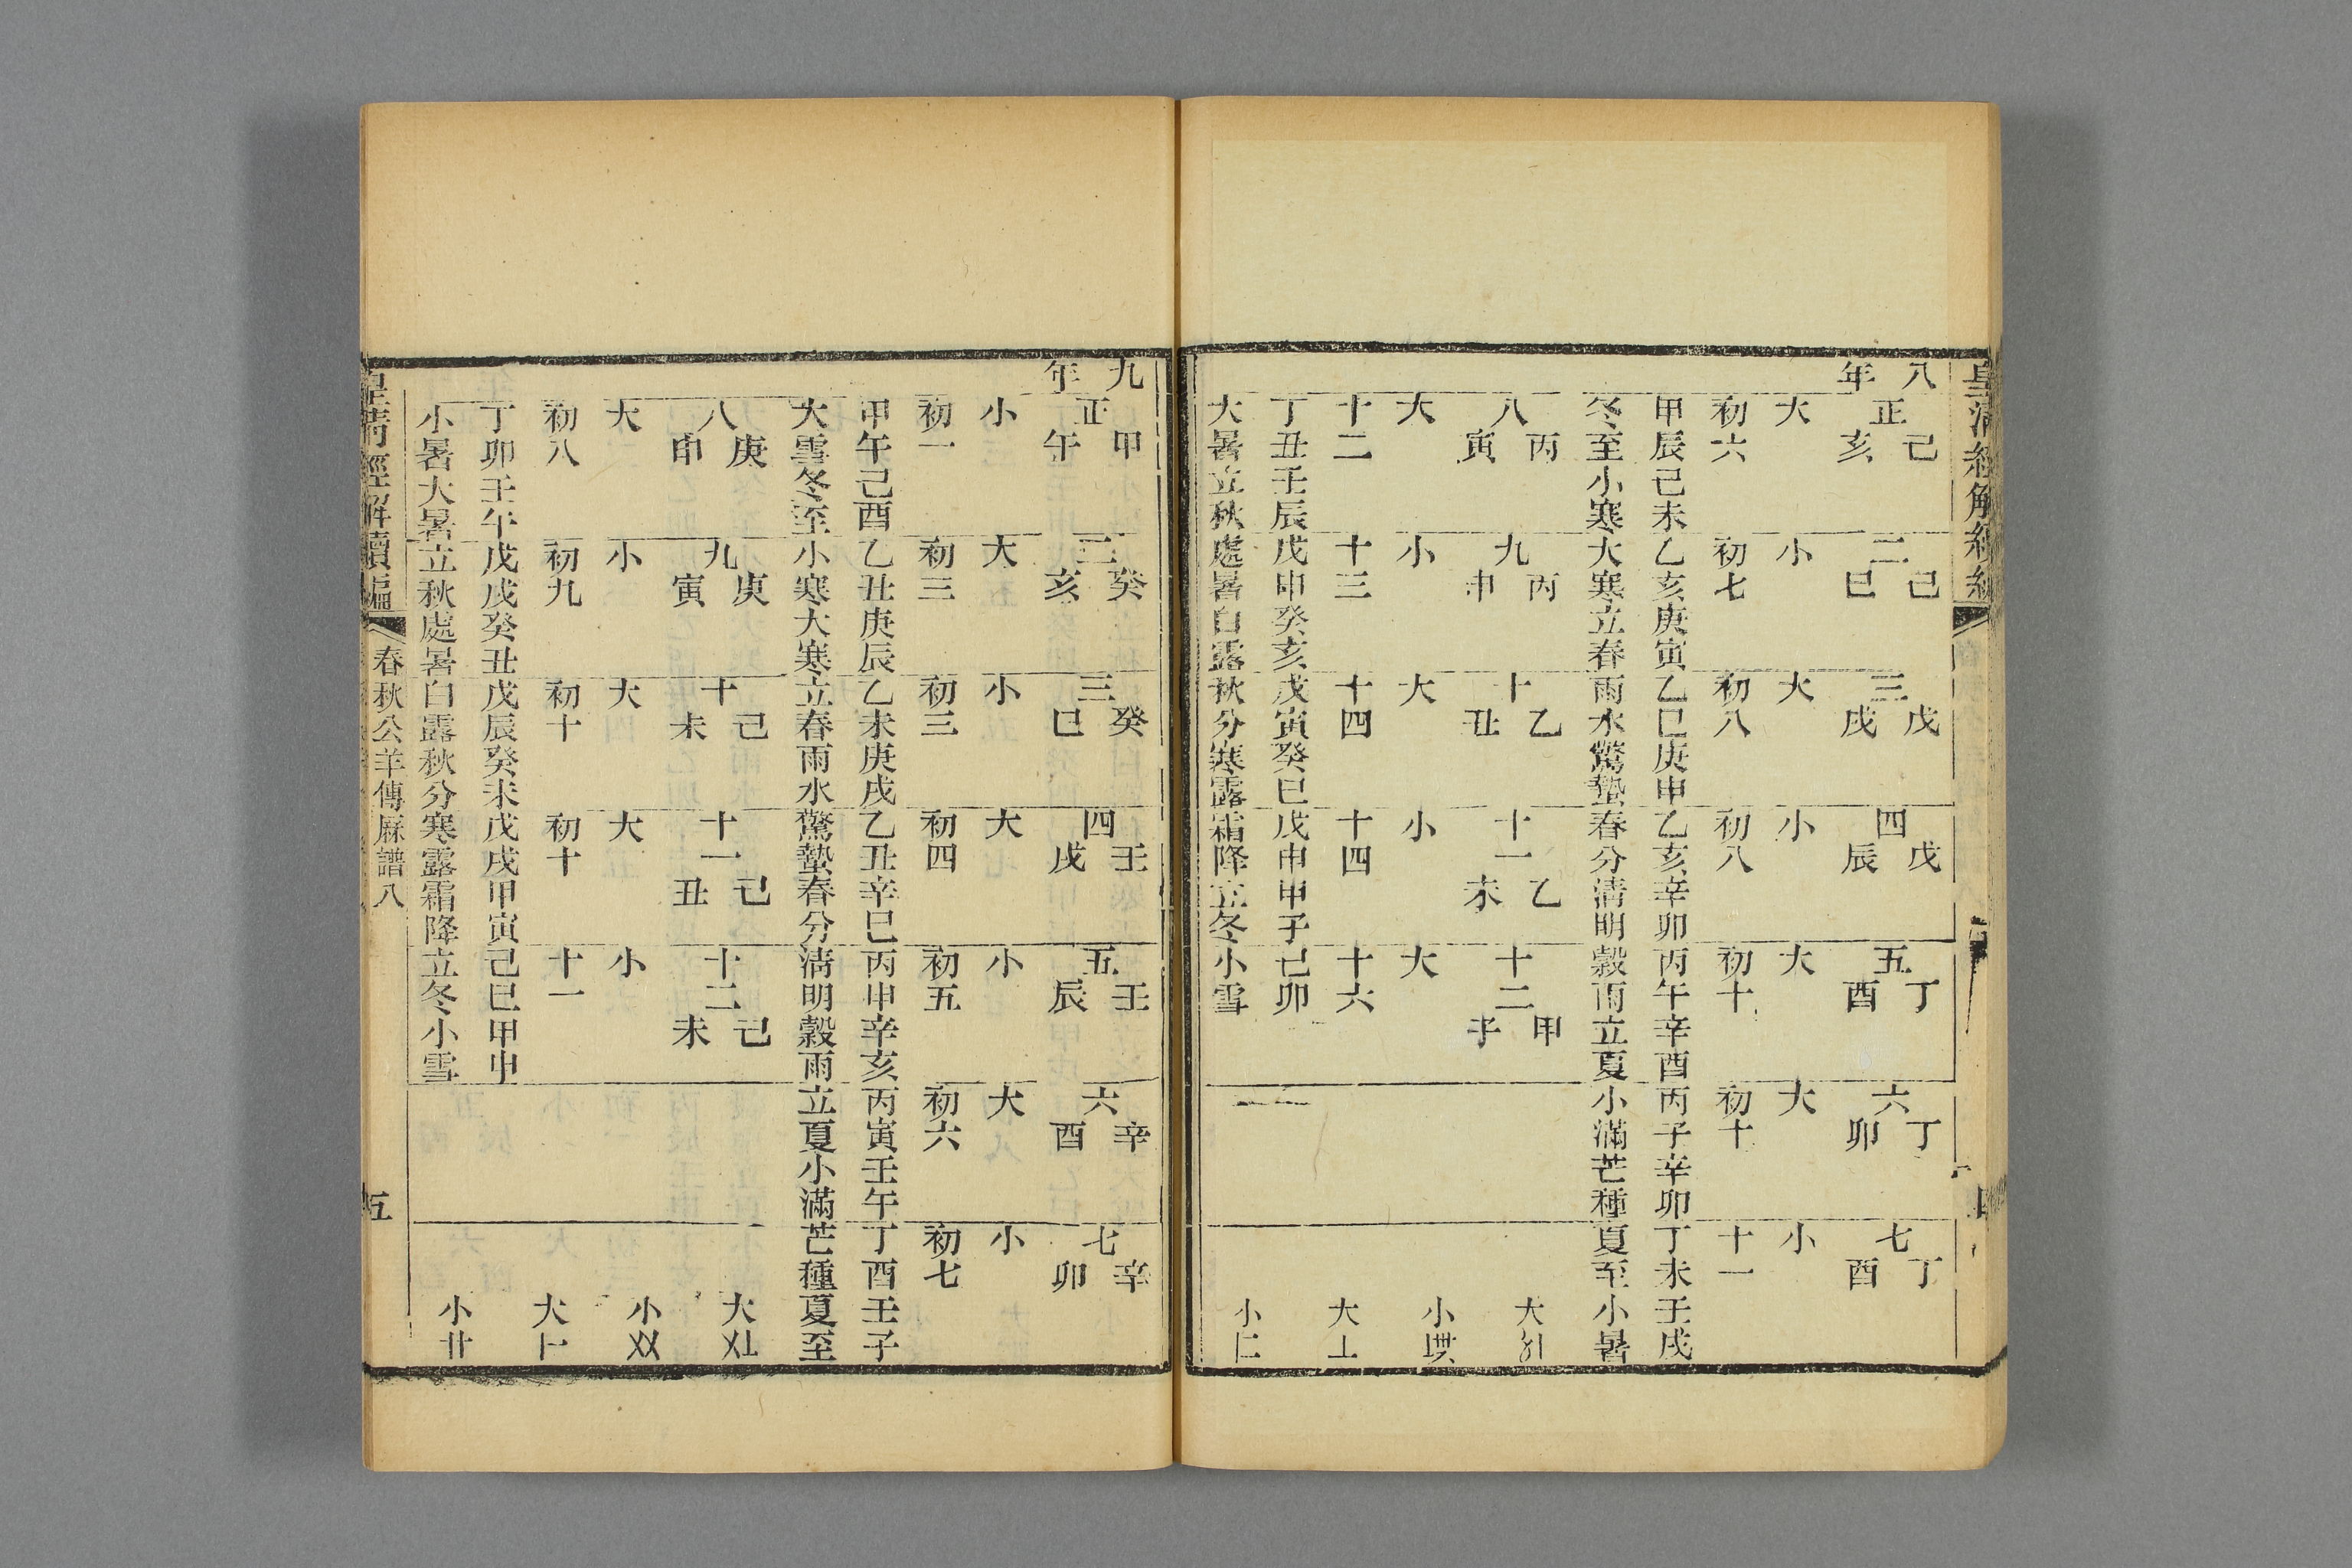 皇清經解續編
八年
正己亥 二己巳 三戊戌 四戊辰 五丁酉 六丁卯 七丁酉
大 小 大 小 大 大 小
初六 初七 初八 初八 初十 初十 十一
甲辰己未 乙亥庚寅 乙巳庚申 乙亥辛卯 丙午辛酉 丙子辛卯 丁未壬戌
冬至小寒 大寒立春 雨水驚蟄 春分清明 穀雨立夏 小滿芒種 夏至小暑
八丙寅 九丙申 十乙丑 十一乙未 十二甲子
大 小 大 小 大
十二 十三 十四 十四 十六
丁丑壬辰 戊申癸亥 戊寅癸巳 戊申甲子 己卯
大暑立秋 處暑白露 秋分寒露 霜降立冬 小雪
大
小
大〦
小
九年
正甲午 二癸亥 三癸巳 四壬戌 五壬辰 六辛酉 七辛卯
小 大 小 大 小 大 小
初一 初三 初三 初四 初五 初六 初七
甲午己酉 乙丑庚辰 乙未庚戌 乙丑辛巳 丙申辛亥 丙寅壬午 丁酉壬子
大雪冬至 小寒大寒 立春雨水 驚蟄春分 清明穀雨 立夏小滿 芒種夏至
八庚申 九庚寅 十己未 十一己丑 十二己未
大 小 大 大 小
初八 初九 初十 初十 十一
丁卯壬午 戊戌癸丑 戊辰癸未 戊戌甲寅 己巳甲申
小暑大暑 立秋處暑 白露秋分 寒露霜降 立冬小雪
大〤〦
小〤〤
大〦
小
皇清經解續編 春秋公羊傳厤譜八 五